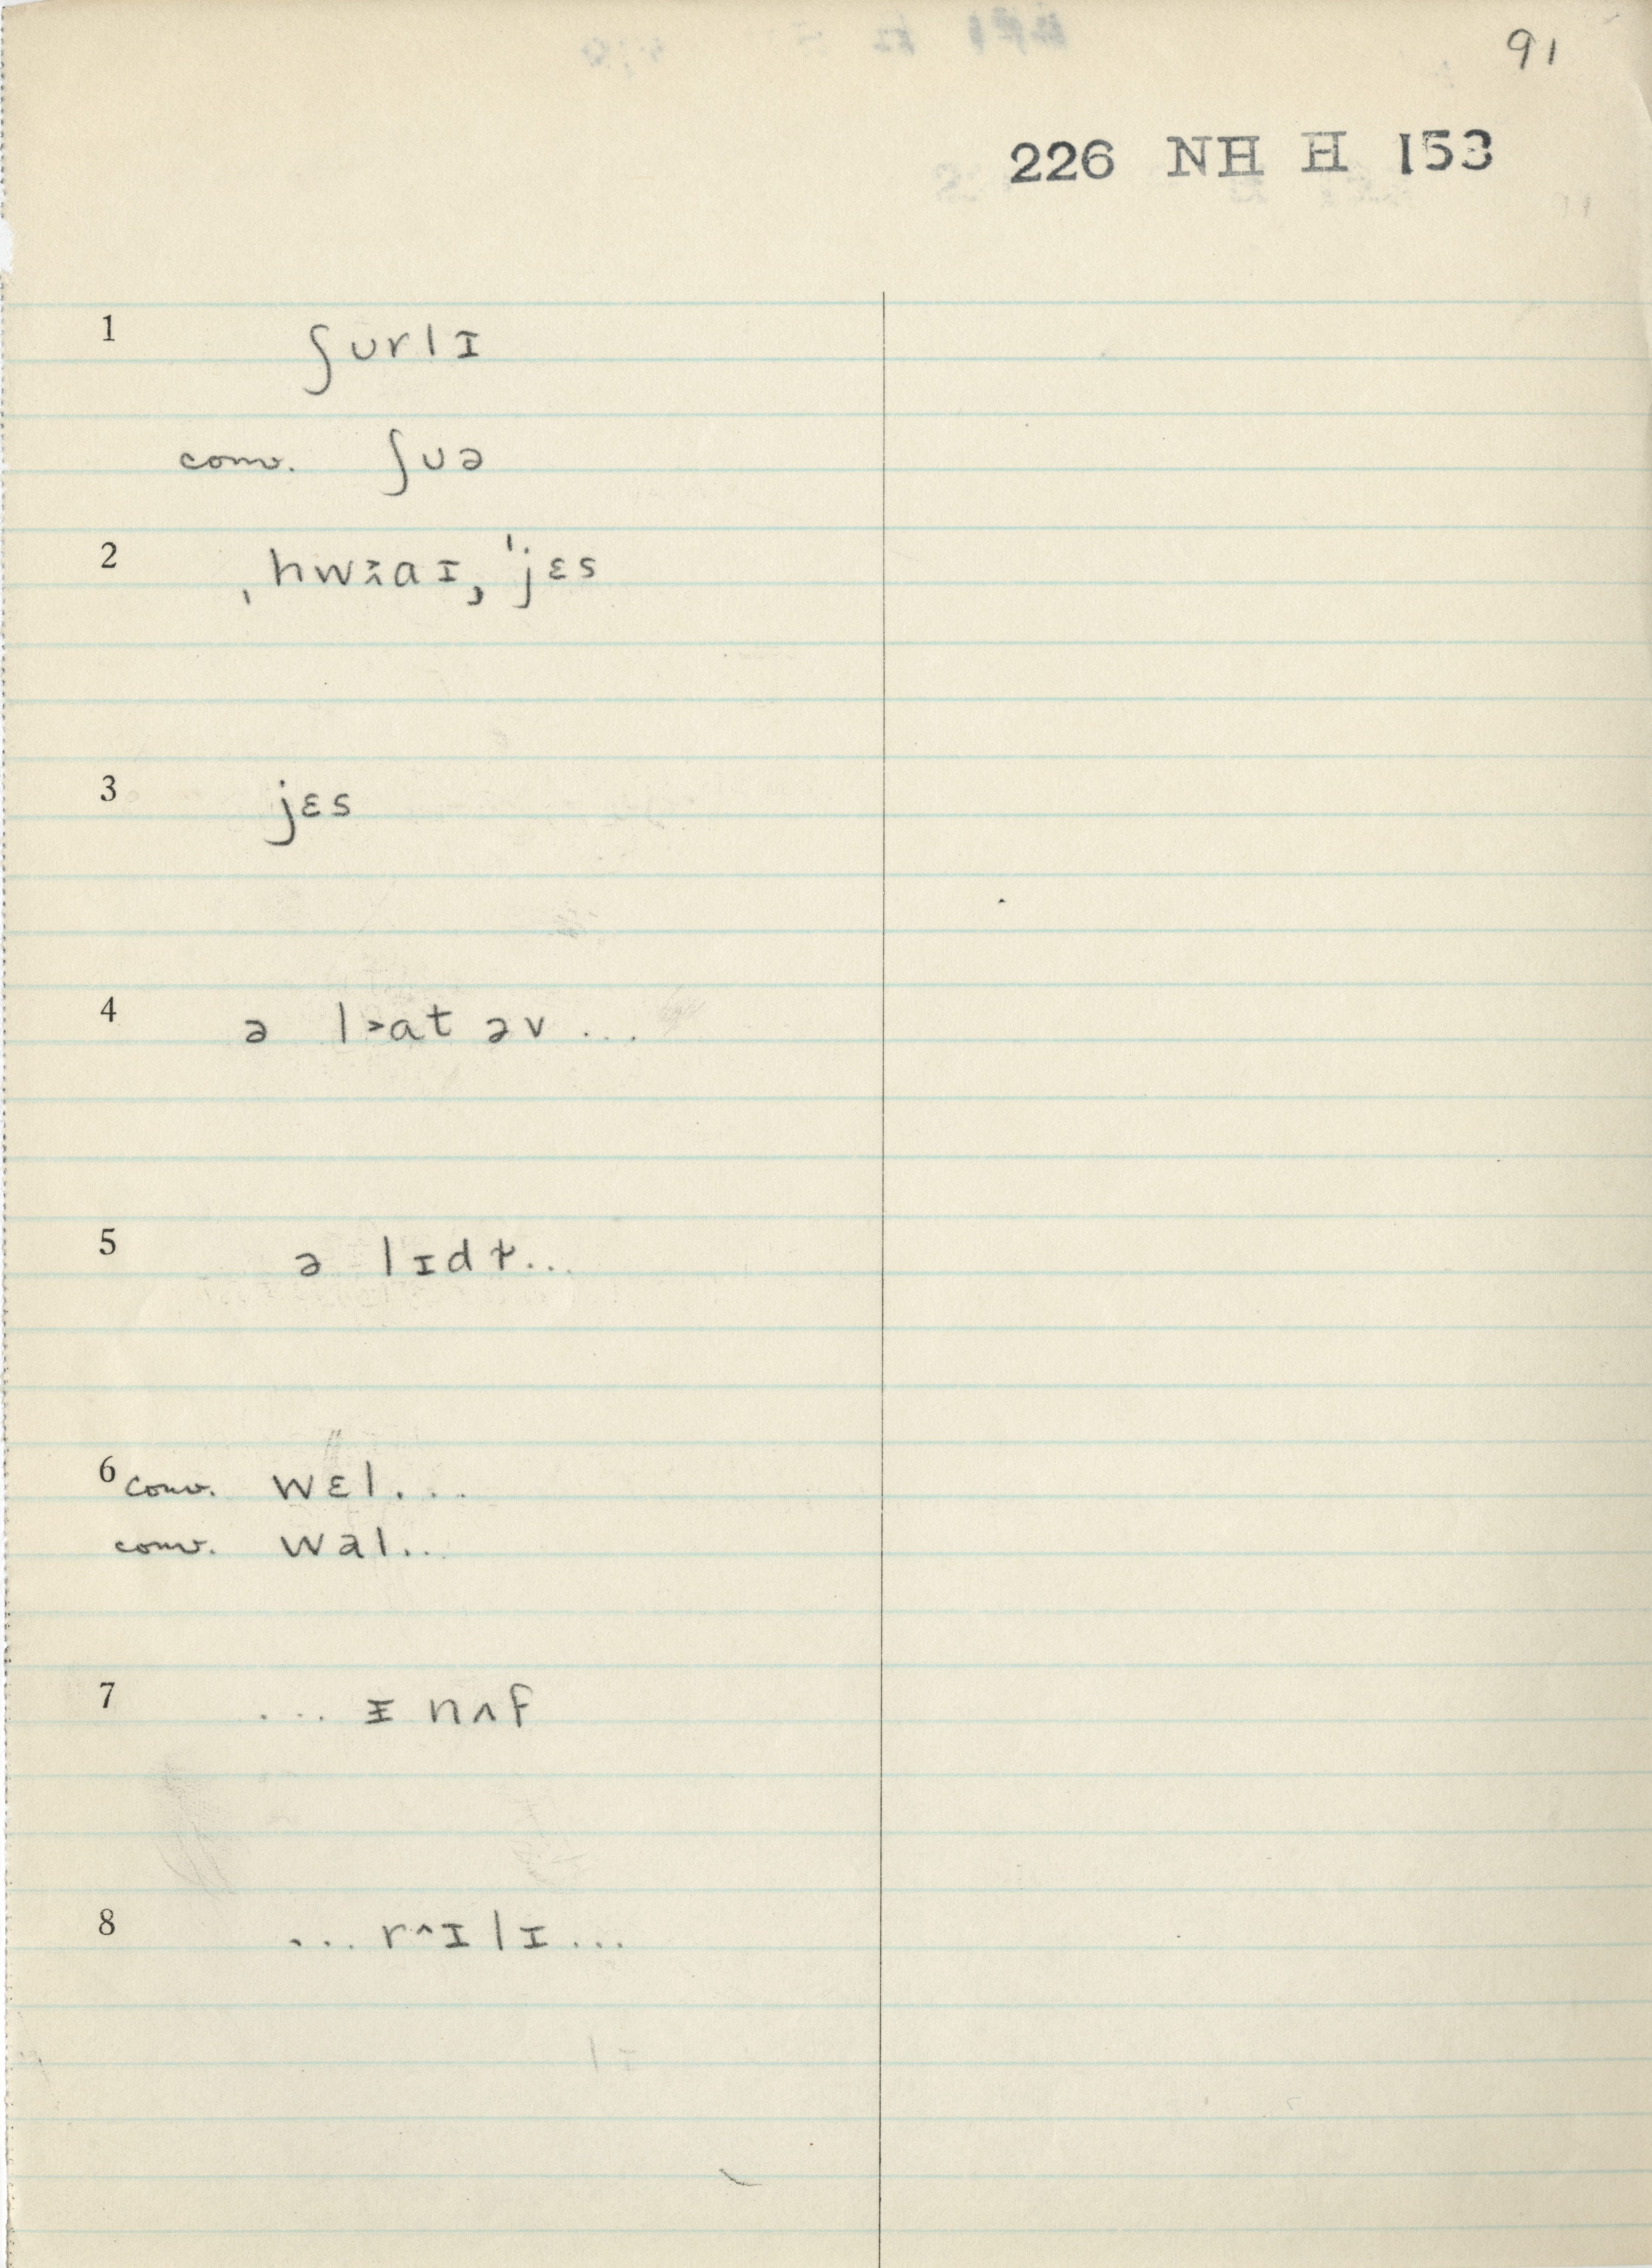 91
226 NH H 153
1 ʃʊrlɪ
conv. ʃʊə
2 ˌhwɑɪ, ˈjɛs
3 jɛs
4 ə l˃at əv ...
5 ə lɪdɫ...
6 conv. wɛl...
conv. wəl..
7 ... ɪ nʌf
8 ... r^ɪlɪ...